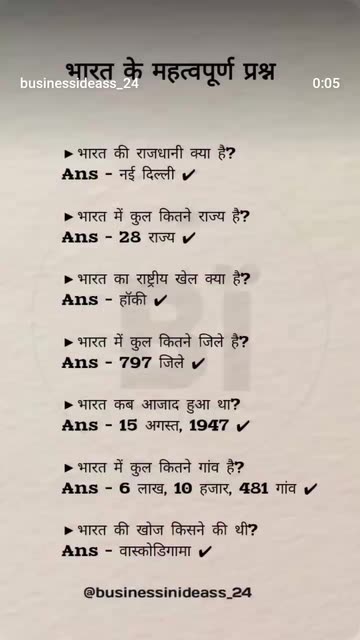 भारत के महत्वपूर्ण प्रश्न
businessideass_24
0:05
►भारत की राजधानी क्या है?
Ans - नई दिल्ली ✔
►भारत में कुल कितने राज्य है?
Ans - 28 राज्य ✔
►भारत का राष्ट्रीय खेल क्या है?
Ans - हॉकी ✔
►भारत में कुल कितने जिले है?
Ans - 797 जिले ✔
►भारत कब आजाद हुआ था?
Ans - 15 अगस्त, 1947 ✔
►भारत में कुल कितने गांव है?
Ans - 6 लाख, 10 हजार, 481 गांव ✔
►भारत की खोज किसने की थी?
Ans - वास्कोडिगामा ✔
Bi
@businessinideass_24